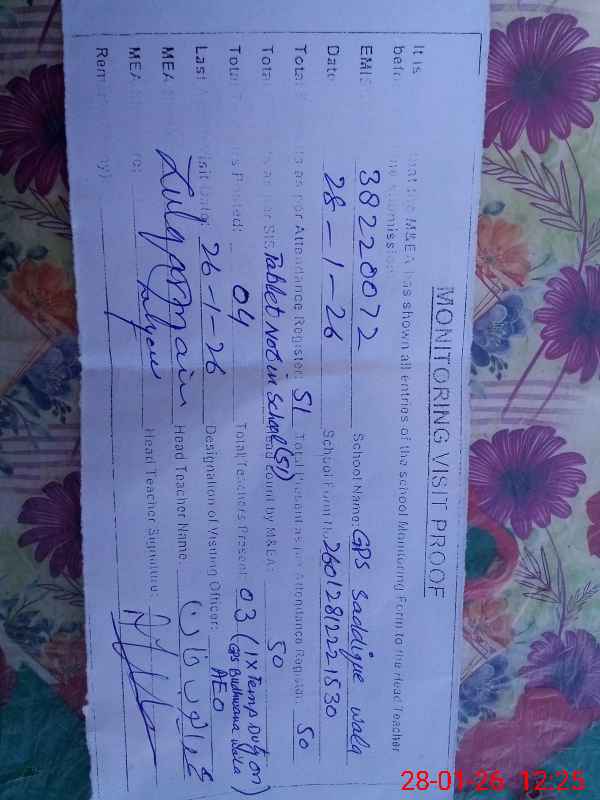 MONITORING VISIT PROOF
It is that the M&EA has shown all entries of the school Monitoring Form to the Head Teacher
before the submission.
EMIS 38220072 School Name: GPS Saddique Wala
Date 28-1-26 School Form No. 26012812221530
Total as per Attendance Register: 51 Total Present as per Attendance Register: 50
Total as per SIS: Tablet Not in School (51) Head Count by M&EA: 50
Total Teachers Posted: 04 Total Teachers Present: 03 (1x Temp Duty on GPS Budhwana Wala)
Last Visit Date: 26-1-26 Designation of Visiting Officer: AEO
MEA Head Teacher Name:
MEA Head Teacher Signature:
28-01-26 12:25